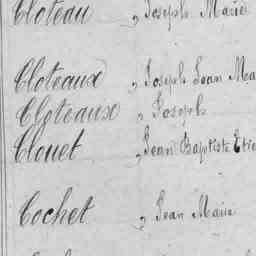 Cloteau , Joseph Marie
Cloteaux , Joseph Jean Ma
Cloteaux , Joseph
Clouet , Jean Baptiste Etie
Cochet , Jean Marie